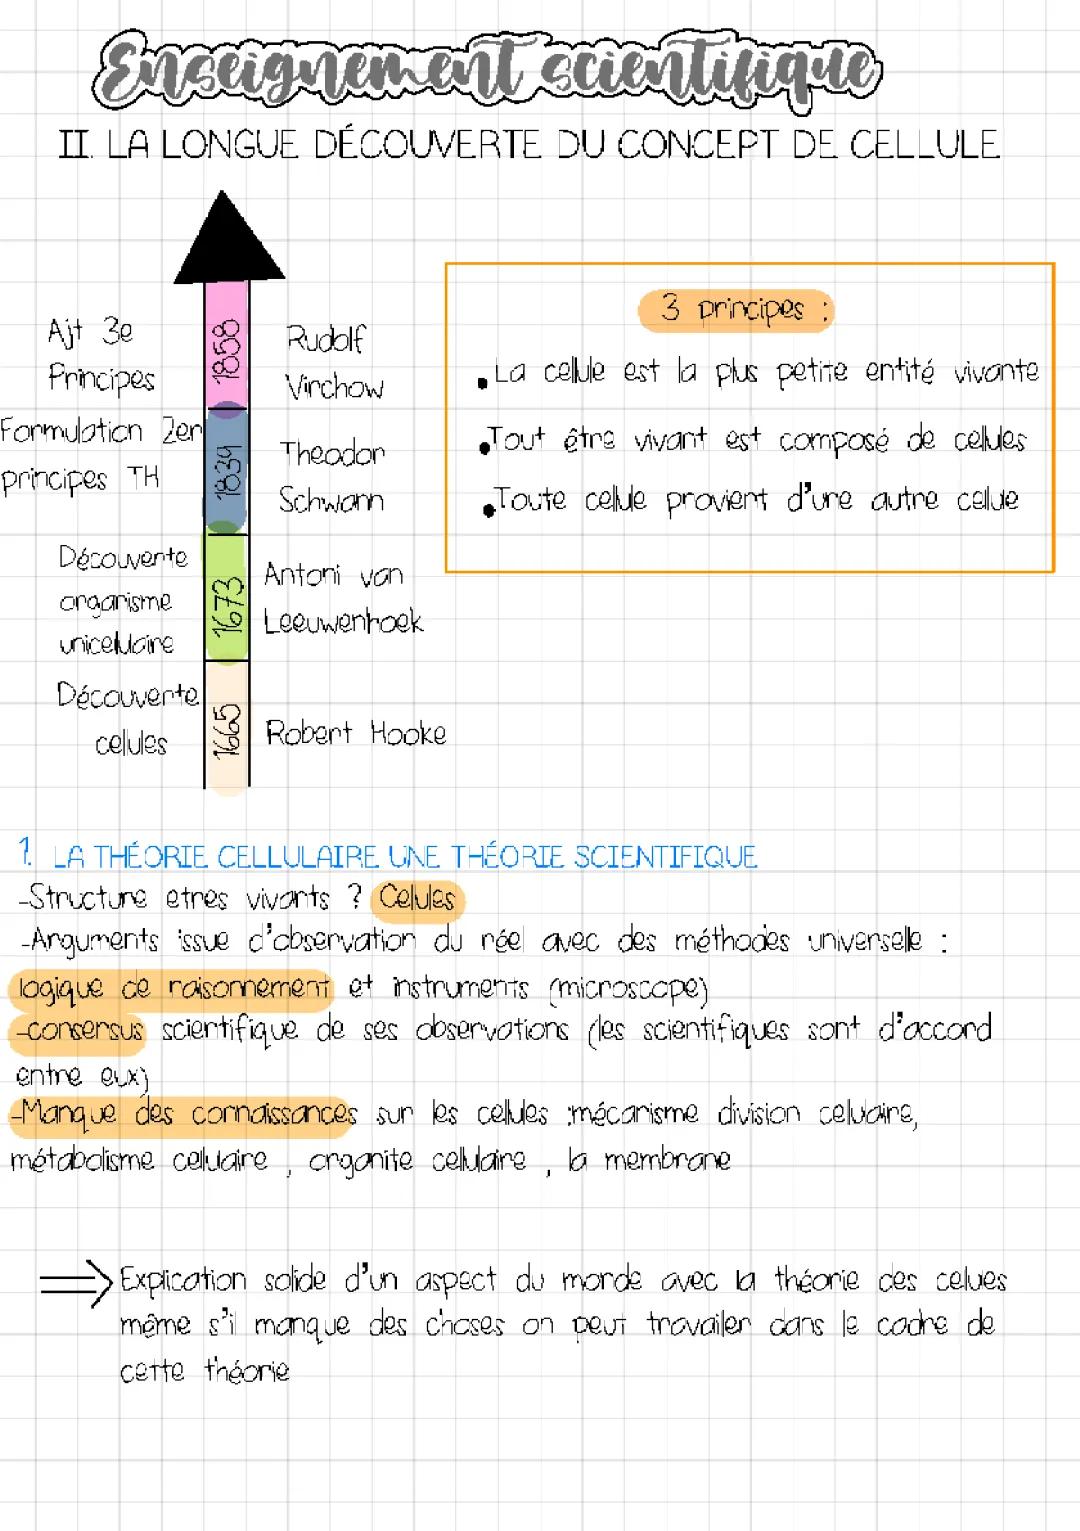 Enseignement scientifique
II. LA LONGUE DÉCOUVERTE DU CONCEPT DE CELLULE
Ajt 3e
Principes
1858
Rudolf
Virchow
Formulation 2er
principes TH
1839
Theodor
Schwann
Découverte
organisme
unicellulaire
1673
Antoni van
Leeuwenhoek
Découverte
cellules
1665
Robert Hooke
3 principes :
• La cellule est la plus petite entité vivante
• Tout être vivant est composé de cellules
• Toute cellule provient d'une autre cellue
1. LA THÉORIE CELLULAIRE UNE THÉORIE SCIENTIFIQUE
-Structure etres vivants ? Cellules
-Arguments issue d'observation du réel avec des méthodes universelle :
logique de raisonnement et instruments (microscope)
-consensus scientifique de ses observations (les scientifiques sont d'accord
entre eux)
-Manque des connaissances sur les cellules :mécanisme division cellulaire,
métabolisme cellulaire , organite cellulaire , la membrane
⇒ Explication solide d'un aspect du monde avec la théorie des cellues
même s'il manque des choses on peut travailler dans le cadre de
cette théorie